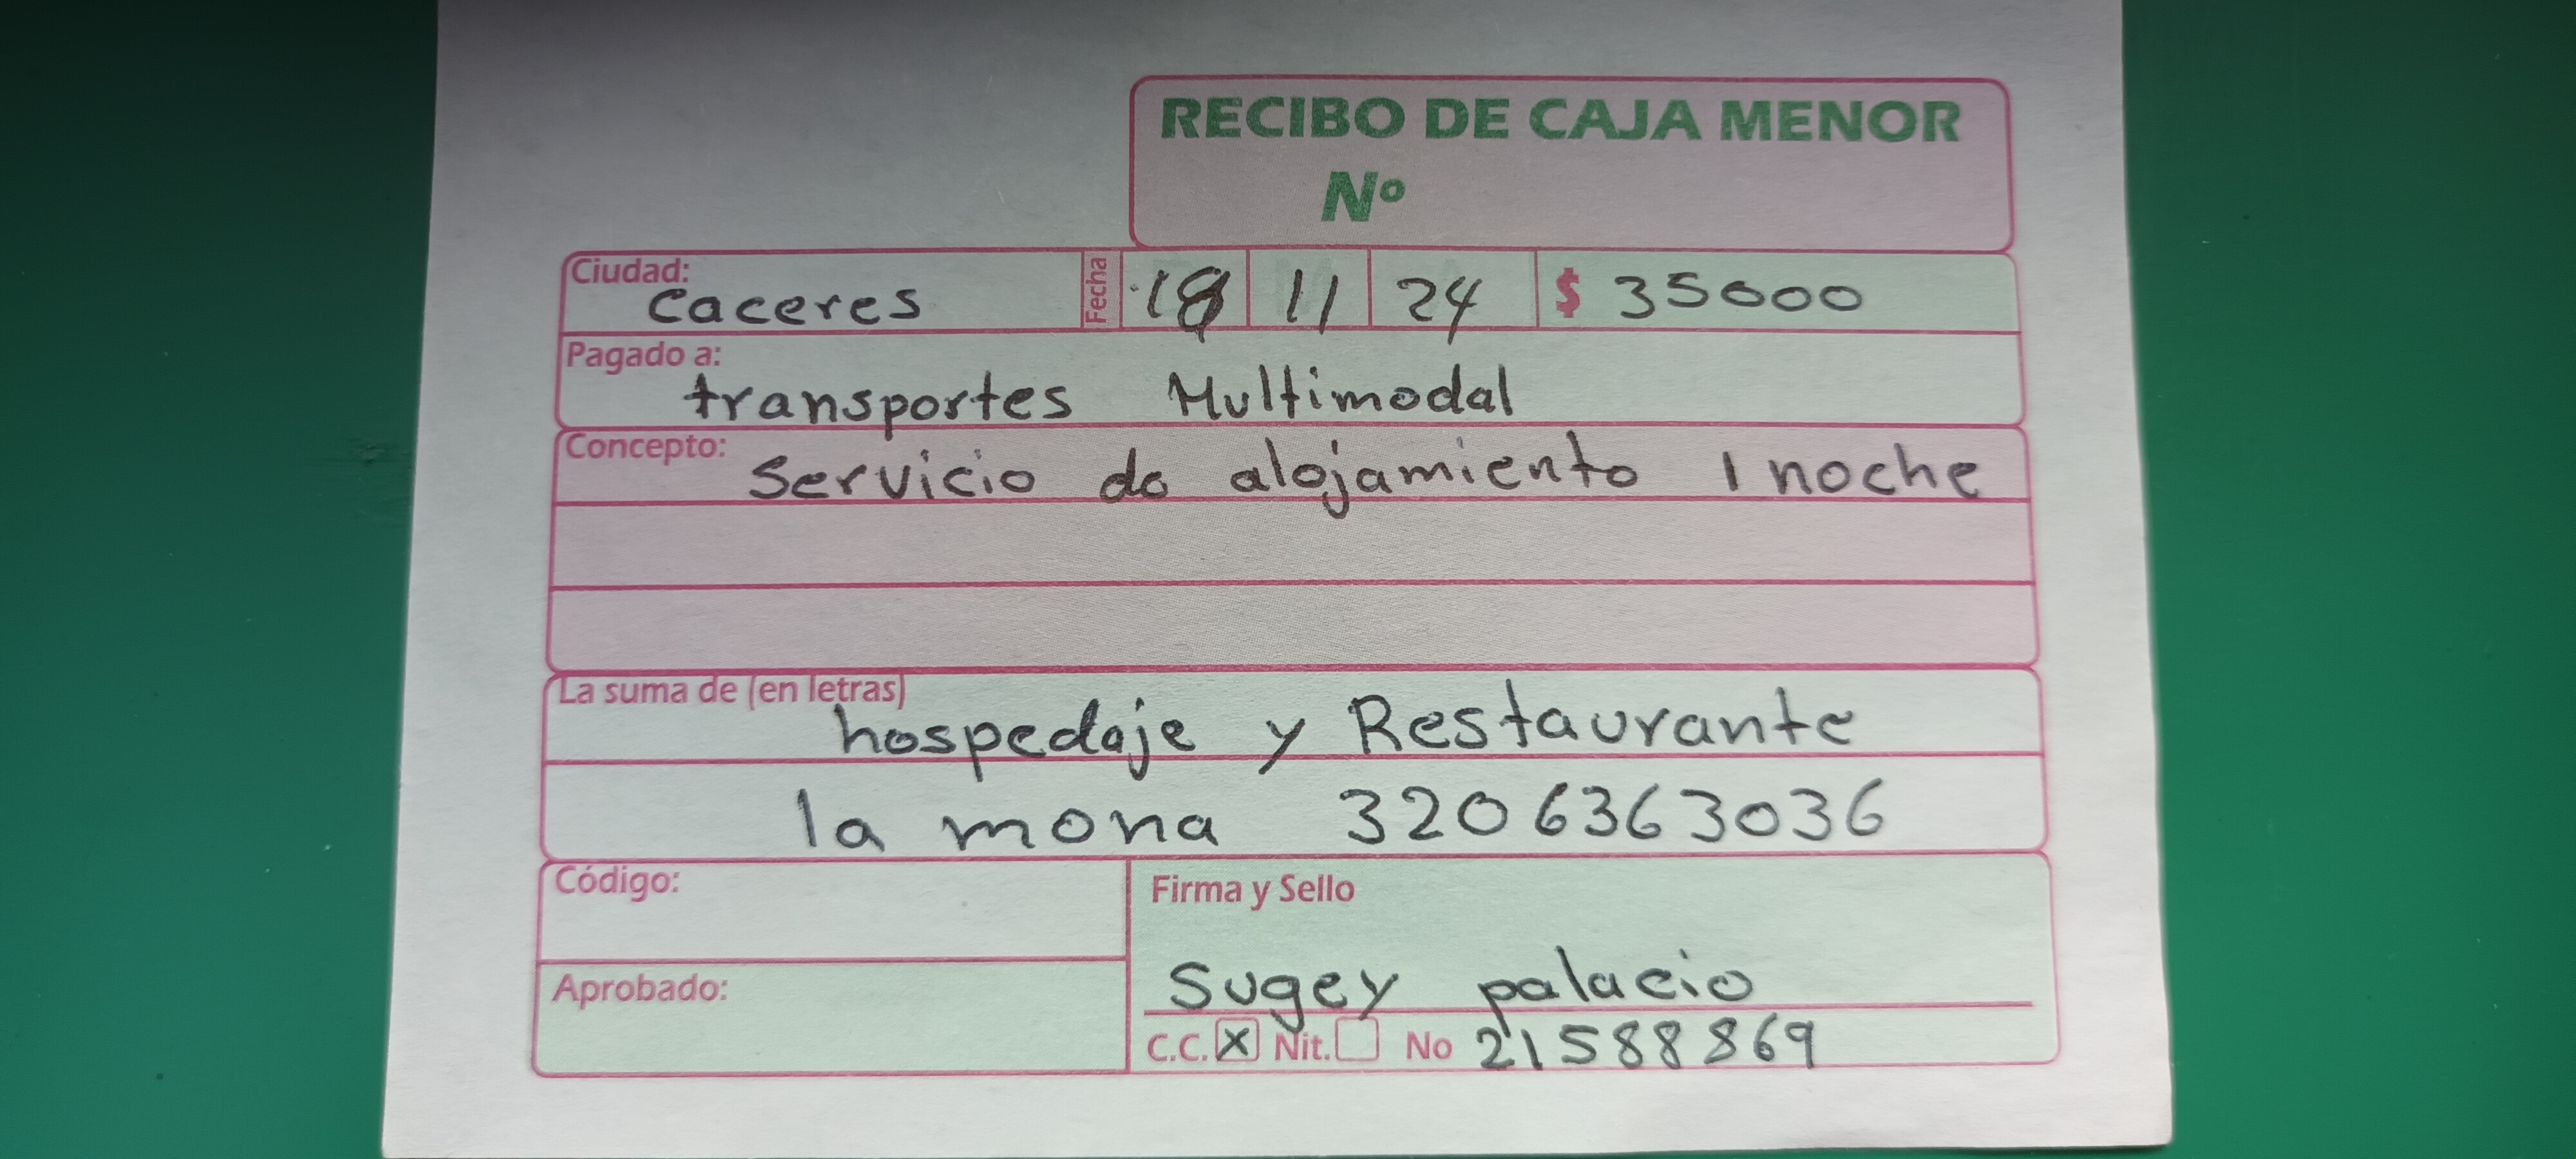 RECIBO DE CAJA MENOR
Nº
Ciudad: Caceres Fecha 11 24 $ 35000
Pagado a: transportes Multimodal
Concepto: Servicio de alojamiento 1 noche
La suma de (en letras) hospedaje y Restaurante
la mona 3206363036
Código:
Aprobado:
Firma y Sello
Sugey palacio
C.C. X Nit. No 21588869